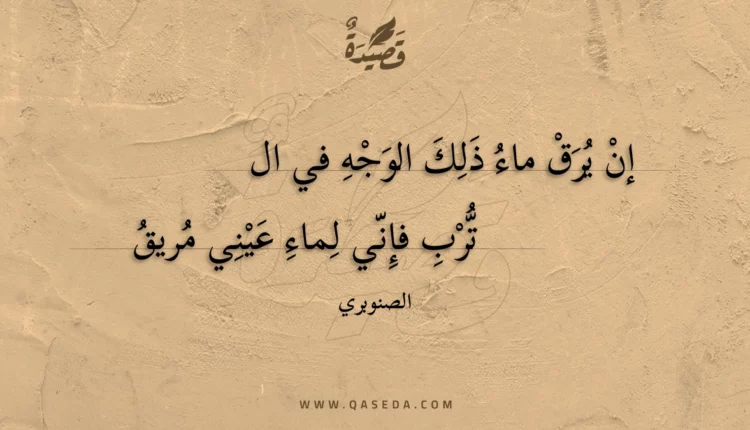 قَصِيدَةٌ
إنْ يُرَقْ ماءُ ذَلِكَ الوَجْهِ في ال
تُّرْبِ فإِنّي لِماءِ عَيْنِي مُريقُ
الصنوبري
WWW.QASEDA.COM